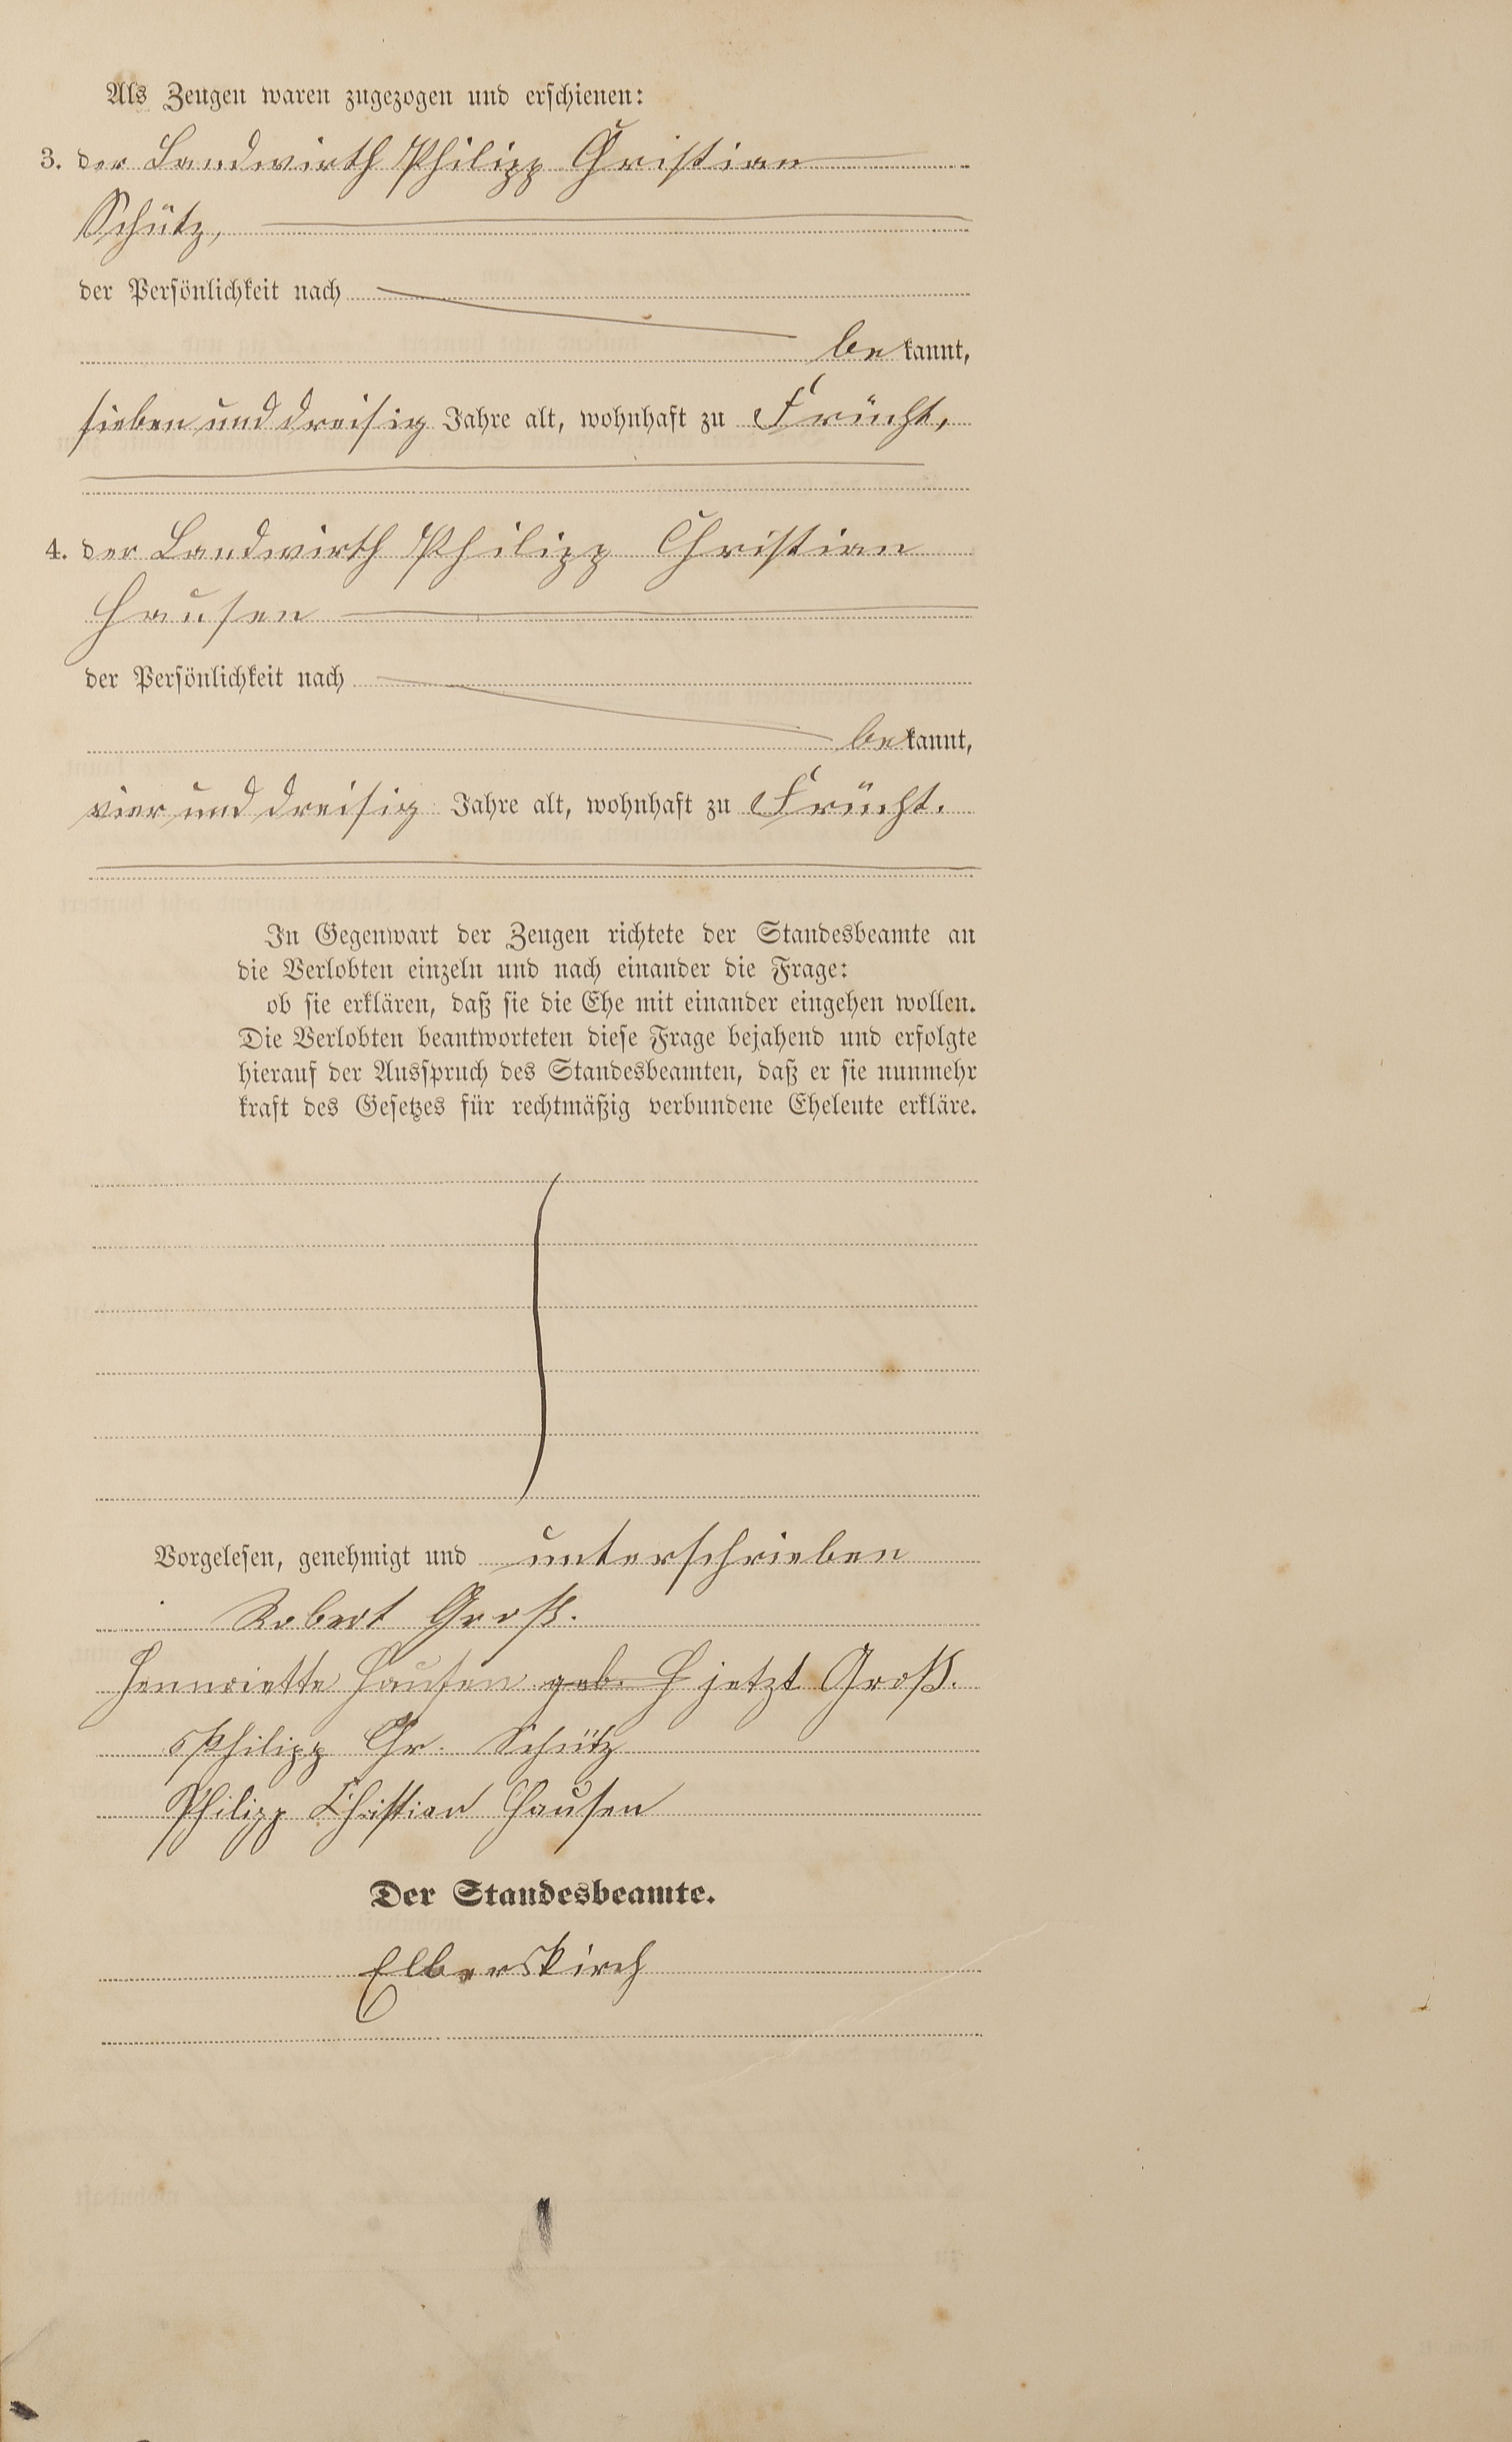 Als Zeugen waren zugezogen und erschienen:
3. der Landwirth Philipp Christian
Schütz,
der Persönlichkeit nach
be kannt,
sieben und dreisig Jahre alt, wohnhaft zu Frücht,
4. der Landwirth Philipp Christian
Hausen
der Persönlichkeit nach
be kannt,
vier und dreisig Jahre alt, wohnhaft zu Frücht.
In Gegenwart der Zeugen richtete der Standesbeamte an
die Verlobten einzeln und nach einander die Frage:
ob sie erklären, daß sie die Ehe mit einander eingehen wollen.
Die Verlobten beantworteten diese Frage bejahend und erfolgte
hierauf der Ausspruch des Standesbeamten, daß er sie nunmehr
kraft des Gesetzes für rechtmäßig verbundene Eheleute erkläre.
Vorgelesen, genehmigt und unterschrieben
Robert Groß.
Hennriette Hausen geb. H jetzt Groß.
Philipp Chr. Schütz
Philipp Christian Hausen
Der Standesbeamte.
Elberskirch